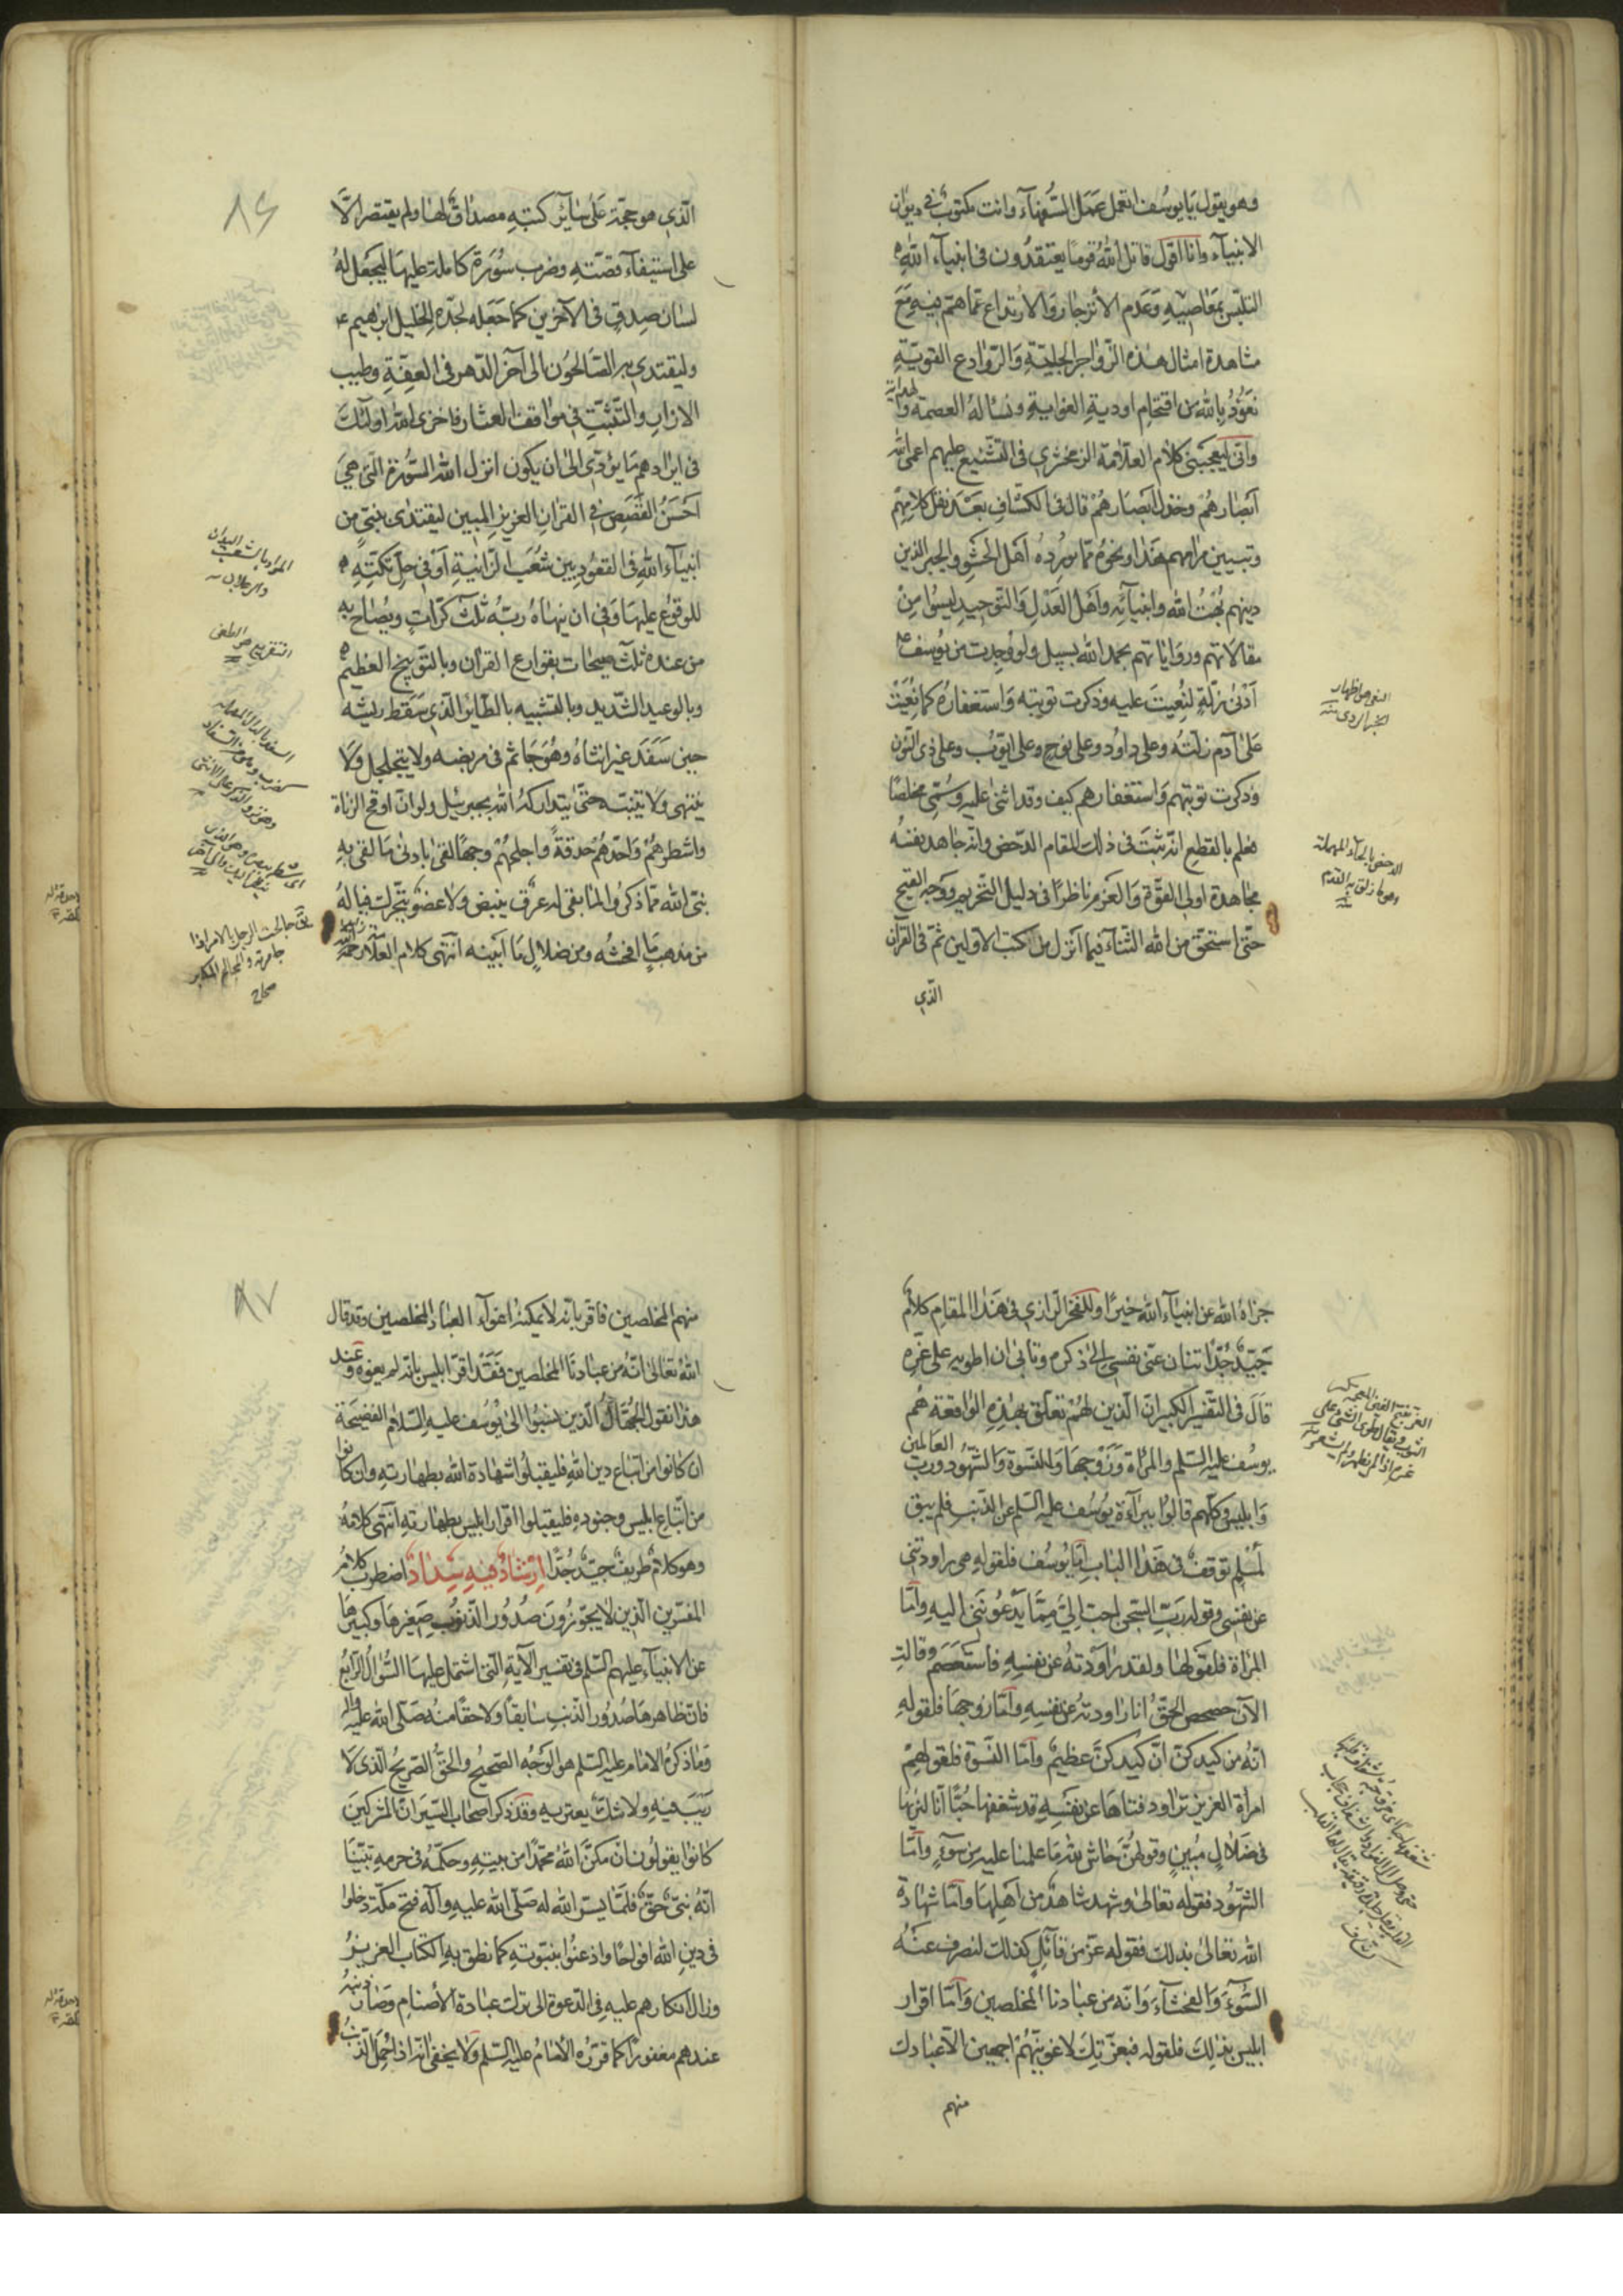 وهو يقول يا يوسف اتعمل عمل السفهاء وانت مكتوب في ديوان
الانبياء وانا اقول قاتل الله قوما يعتقدون في انبياء الله
التلبس بمعاصيه وعدم الانزجار والارتداع عما هم فيه مع
مشاهدة امثال هذه الزواجر الجلية والروادع القوية
نعوذ بالله من اقتحام اودية الغواية ونساله العصمة والهداية
واني ليعجبني كلام العلامة الزمخشري في التشنيع عليهم اعمى الله
ابصارهم وخذل انصارهم قال في الكشاف بعد نقل كلامهم
وتبيين مرامهم هذا ونحوه مما يورده اهل الحشو والجبر الذين
دينهم بهت الله وانبيائه واهل العدل والتوحيد ليسوا من
مقالاتهم ورواياتهم بحمد الله بسبيل ولو وجدت من يوسف ع
ادنى زلة لنعيت عليه وذكرت توبته واستغفاره كما نعيت
على آدم زلته وعلى داود وعلى نوح وعلى ايوب وعلى ذي النون
وذكرت توبتهم واستغفارهم كيف وقد اثنى عليه وسمي مخلصا
فعلم بالقطع انه ثبت في ذلك المقام الدحض وانه جاهد نفسه
مجاهدة اولي القوة والعزم ناظرا في دليل التحريم ووجه القبح
حتى استحق من الله الثناء فيما انزل من كتب الاولين ثم في القرآن
الذي
النعي هو اظهار
الخبر الردي منه
الدحض بالحاء المهملة
هو ما زلق به القدم
منه
٨٦
الذي هو حجة على سائر كتبه مصداق لها ولم يقتصر الا
على استيفاء قصته وضرب سورة كاملة عليها ليجعل له
لسان صدق في الآخرين كما جعله لجده الخليل ابراهيم ع
وليقتدي به الصالحون الى آخر الدهر في العفة وطيب
الازار والتثبت في مواقف العثار فاخزى الله اولئك
في ايرادهم ما يؤدي الى ان يكون انزل الله السورة التي هي
احسن القصص في القرآن العزيز المبين ليقتدى بنبي من
انبياء الله في القعود بين شعب الزانية او في حل تكته
للوقوع عليها وفي ان ينهاه ربه ثلث كرات ويصاح به
من عنده ثلث صيحات بقوارع القرآن وبالتوبيخ العظيم
وبالوعيد الشديد وبالتشبيه بالطائر الذي سقط ريشه
حين سفد غير انثاه وهو جاثم في مربضه ولا يتحلحل ولا
ينتهي ولا يتنبه حتى يتداركه الله بجبرئيل ولو ان اوقح الزناة
واشطرهم واحدهم حدقة واجلحهم وجها لقى بادنى ما لقى به
نبي الله مما ذكروا لما بقي له عرق ينبض ولا عضو يتحرك فياله
من مذهب ما افحشه ومن ضلال ما ابينه انتهى كلام العلامة
المراد بالشعب اليدان
والرجلان منه
جالحت الرجل بالامر اذا
جاهرته والمجالح المكابر
صحاح
جزاه الله عن انبياء الله خيرا وللفخر الرازي في هذا المقام كلام
جيد جدا تتنازعني نفسي الى ذكره وتأبى ان اطويه على غره
قال في التفسير الكبير ان الذين لهم تعلق بهذه الواقعة هم
يوسف عليه السلم والمراة وزوجها والنسوة والشهود ورب العالمين
وابليس وكلهم قالوا ببراءة يوسف عليه السلم عن الذنب فلم يبق
لمسلم توقف في هذا الباب اما يوسف فلقوله هي راودتني
عن نفسي وقوله رب السجن احب الي مما يدعونني اليه واما
المراة فلقولها ولقد راودته عن نفسه فاستعصم وقالت
الآن حصحص الحق انا راودته عن نفسه واما زوجها فلقوله
انه من كيدكن ان كيدكن عظيم واما النسوة فلقولهم
امراة العزيز تراود فتاها عن نفسه قد شغفها حبا انا لنريها
في ضلال مبين وقولهن حاش لله ما علمنا عليه من سوء واما
الشهود فقوله تعالى وشهد شاهد من اهلها واما شهادة
الله تعالى بذلك فقوله عز من قائل كذلك لنصرف عنه
السوء والفحشاء وانه من عبادنا المخلصين واما اقرار
ابليس بذلك فلقوله فبعزتك لاغوينهم اجمعين الا عبادك
منهم
٨٧
منهم المخلصين فاقر بانه لا يمكنه اغواء العباد المخلصين وقد قال
الله تعالى انه من عبادنا المخلصين فقد اقر ابليس بانه لم يغوه وعند
هذا نقول الجهال الذين نسبوا الى يوسف عليه السلام الفضيحة
ان كانوا من اتباع دين الله فليقبلوا شهادة الله بطهارته وان كانوا
من اتباع ابليس وجنوده فليقبلوا اقرار ابليس بطهارته انتهى كلامه
وهو كلام ظريف جيد جدا ارشاد فيه سداد اضطرب كلام
المفسرين الذين لا يجوزون صدور الذنوب صغيرها وكبيرها
عن الانبياء عليهم السلم في تفسير الآية التي اشتمل عليها السؤال الرابع
فان ظاهرها صدور الذنب سابقا ولاحقا منه صلى الله عليه واله
وما ذكره الامام عليه السلم هو الوجه الصحيح والحق الصريح الذي لا
ريب فيه ولا شك يعتريه وقد ذكر اصحاب السير ان المشركين
كانوا يقولون ان مكن الله محمدا من بيته وحكمه في حرمه تبينا
انه نبي حق فلما يسر الله له صلى الله عليه وآله فتح مكة دخلوا
في دين الله افواجا واذعنوا بنبوته كما نطق به الكتاب العزيز
وزال انكارهم عليه في الدعوة الى ترك عبادة الاصنام وصار ذنبه
عندهم مغفورا كما قرره الامام عليه السلم ولا يخفى انه اذا حمل الذنب